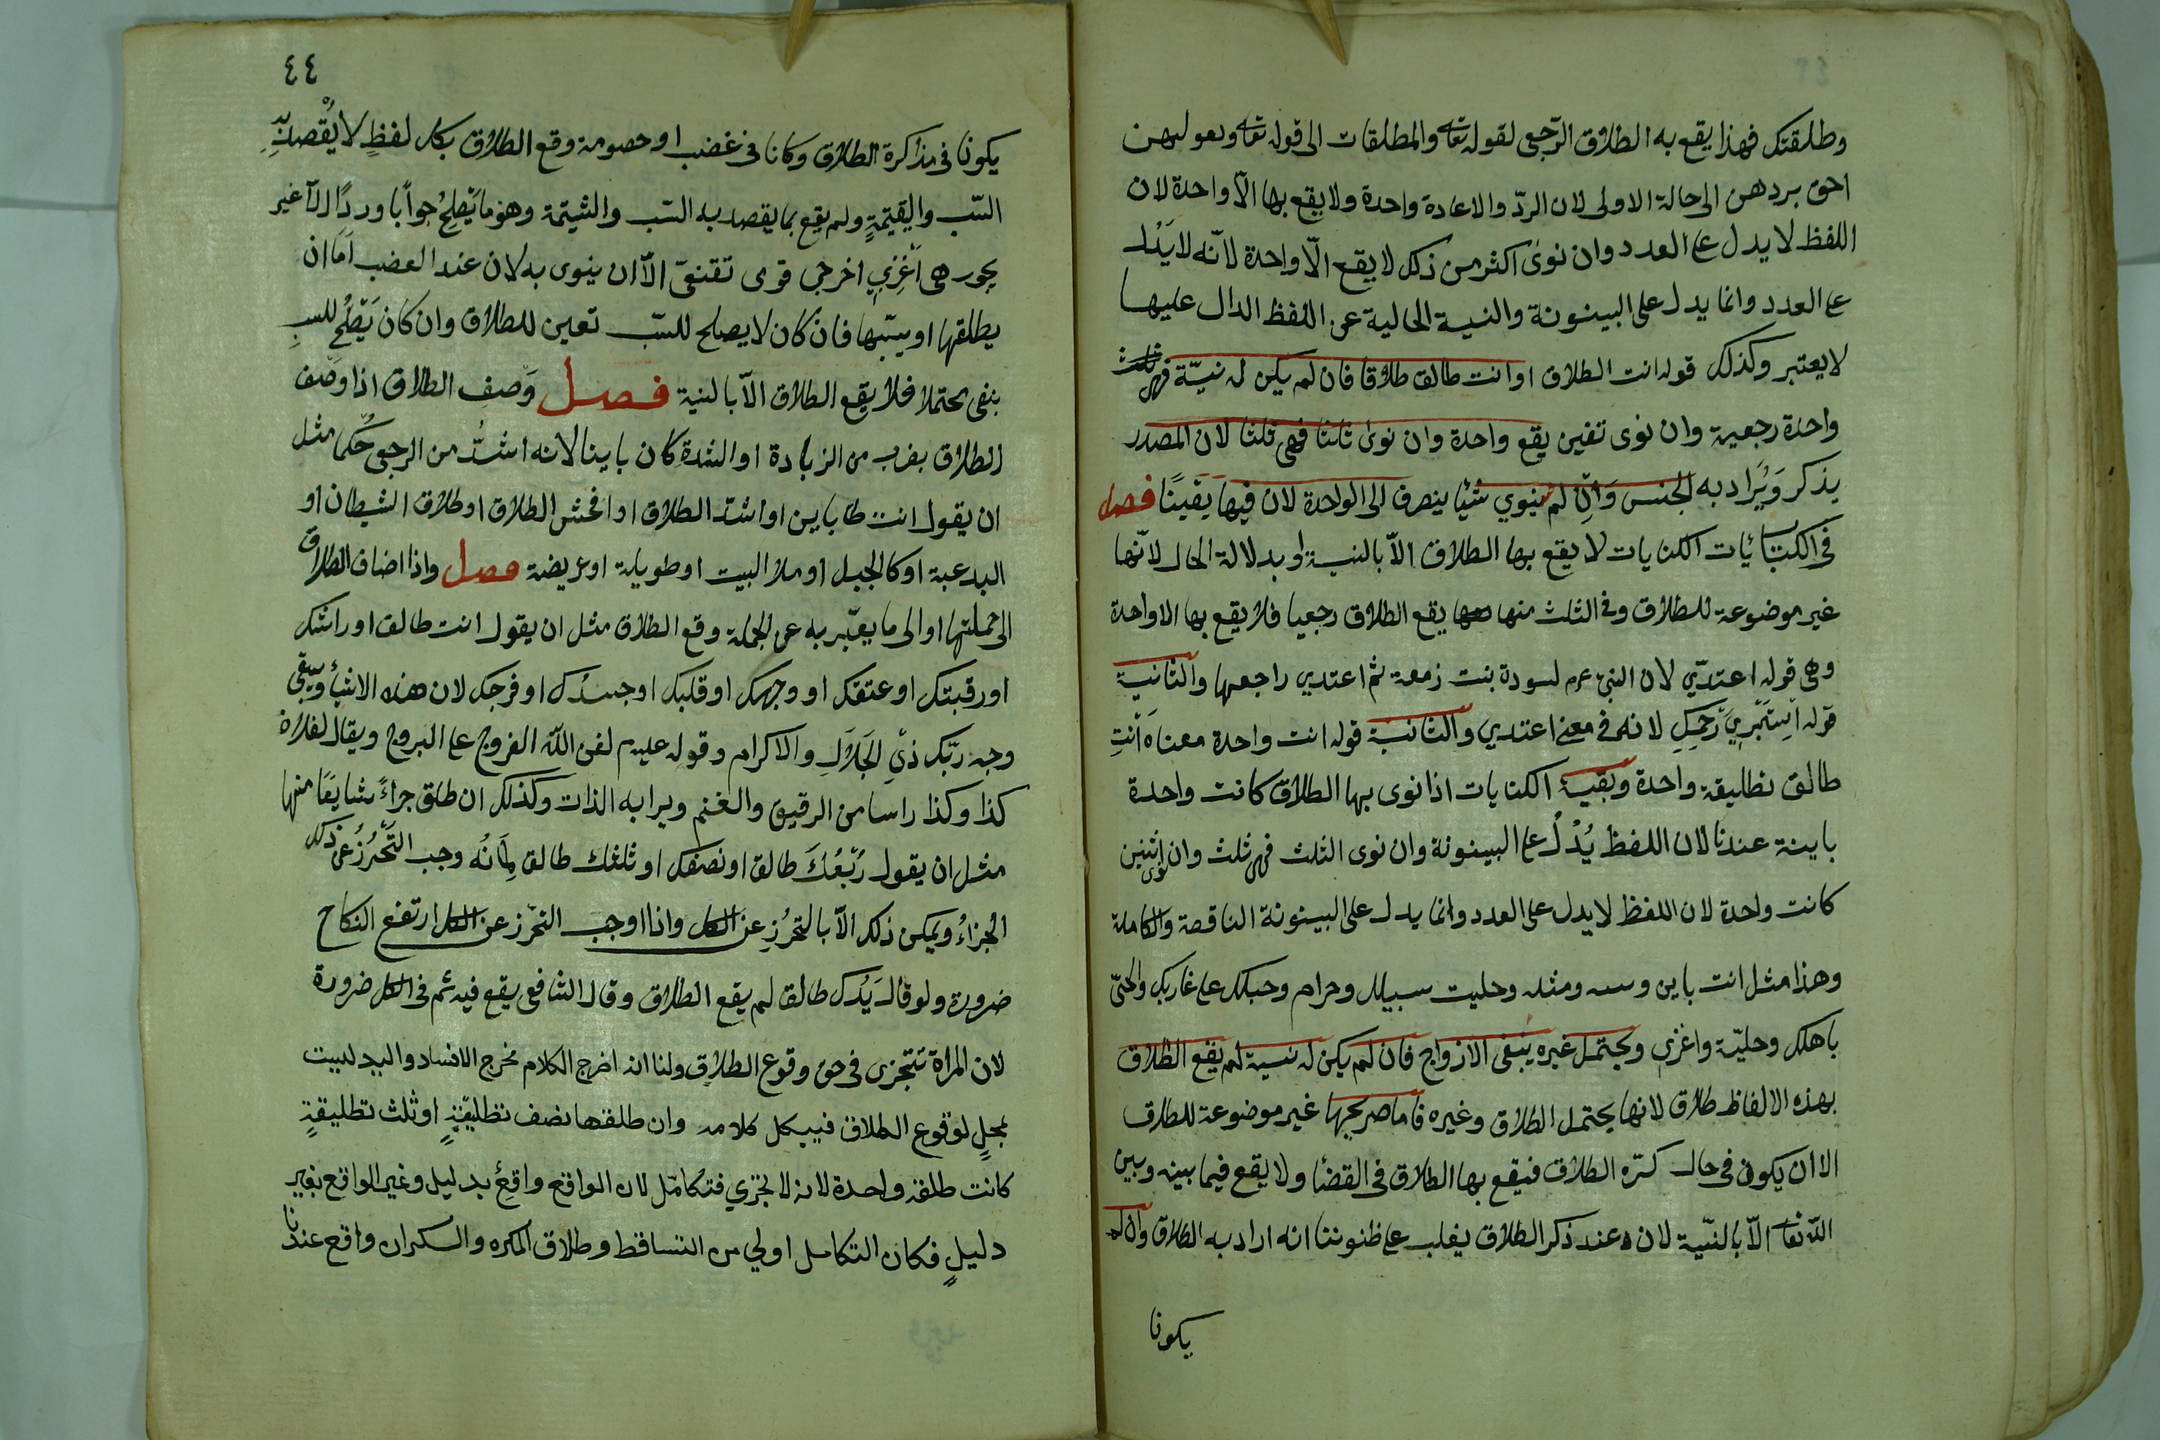 وطلقتك فهذا يقع به الطلاق الرّجعى لقوله تعا والمطلقات الى قوله تعا وبعولتهن
احق بردهن الى حالة الاولى لان الردّ والاعادة واحدة ولا يقع بها الاّ واحدة لان
اللفظ لا يدل ع العدد وان نوى اكثر من ذلك لا يقع الاّ واحدة لانّه لا يَدُل
ع العدد وانما يدل على البينونة والنية الخالية عن اللفظ الدال عليها
لا يعتبر وكذلك قوله انت الطلاق او انت طالق طلاقا فان لم يكن له نيّة فهى
واحدة رجعية وان نوى ثنتين يقع واحدة وان نوى ثلثا فهى ثلثا لان المصدر
يذكر وَيُرَاد به الجنس وَاِن لم ينوي شيًا ينصرف الى الواحدة لان فيها يقينًا فصل
فى الكنايات الكنايات لا يقع بها الطلاق الاّ بالنية او بدلالة الحال لانّها
غير موضوعة للطلاق وفى الثلث منها يقع الطلاق رجعيا فلا يقع بها الا واحدة
وهى قوله اعتدّي لان النبى عم لسودة بنت زمعة ثم اعتدي راجعها والثانية
قوله اِستَبْرِيَ رَحِمِكِ لانه فى معنى اعتدي والثانية قوله انت واحدة معناه اَنْتِ
طالق تطليقة واحدة وبقية الكنايات اذا نوى بها الطلاق كانت واحدة
باينة عندنا لان اللفظ يُدْلُ ع البينونة وان نوى الثلث فهى ثلث وان نوى اثنين
كانت واحدة لان اللفظ لا يدل على العدد وانما يدل على البينونة الناقصة والكاملة
وهذا مثل انت باين ومثله وحليت سبيلك وحرام وحبلك على غاربك والحقى
باهلك وحليّة واغزي ويحتمل غيره ينبغى الازواج فان لم يكن له نية لم يقع الطلاق
بهذه الالفاظ طلاق لانها يحتمل الطلاق وغيره فاما صريحها غير موضوعة للطلاق
الا ان يكون فى حال الطلاق فيقع بها الطلاق فى القضا ولا يقع فيما بينه وبين
اللّه تعا الاّ بالنيّة لان عند ذكر الطلاق يغلب على ظنوننا انه اراد به الطلاق وان لم
يكونا
٤٤
يكونا فى مذاكرة الطلاق وكانا فى غضب او حصومة وقع الطلاق بكل لفظٍ لا يُقْصد به
السّب والقيتمةٍ ولم يقع بما يقصد به السّب والشتيمة وهو ما يَصْلِحُ جواًبا وردًا لا غير
يجور هى اَغْزِىِ اخرجي قومى تقنعىّ الاّ ان ينوى به لان عند الغضب اَمَا ان
يطلقها او يسبّها فان كان لا يصلح للسّب تعين للطلاق وان كان يَصْلُح للسبِ
بنفى محتملا فلا يقع الطلاق الاّ بالنية فصل وَصِف الطلاق اذا وصف
الطلاق بضرب من الزيادة او الشدة كان باينا لانه اشدُّ من الرجعى حُكما مثل
ان يقول انت طا باين او اشدّ الطلاق او افحش الطلاق او طلاق الشيطان او
البدعبة او كالجبل او ملأ البيت او طويلة او عريضة فصل واذا اضاف الطلاق
الى جملتها او الى ما يعبّر به عن الجملة وقع الطلاق مثل ان يقول انت طالق او راسك
او رقبتك او عنقك او وجهك او قلبك او جسدك او فرجك لان هذه الاشيأ ويبقى
وجه ربّك ذىِ الجَلاَلِ والاكرام وقوله عليه م لعن اللّه الفروج على البروج ويقال لفلان
كذا وكذا راسا من الرقيق والغنم ويرا به الذات وكذلك ان طلق جزاءً شايعًا منها
مثل ان يقول رُبْعُكَ طالق او نصفك او ثلثك طالق لِاَنَّه وجب التَّحَرُّز عن ذلك
الجزاءُ ويمكن ذلك الاّ بالتحرُزِ عن الكل واذا اوجب التحرّز عن الكل ارتفع النكاح
ضرورة ولو قال يَدُك طالق لم يقع الطلاق وقال الشافعى يقع فيه ثم فى الكل ضرورة
لان المرأة تتجزى فى حق وقوع الطلاق ولنا انه اخرج الكلام مخرج الافساد واليد ليست
بمحلٍ لوقوع الطلاق فيبطل كلامه وان طلقها نصف تطليقةٍ او ثلث تطليقةٍ
كانت طلقة واحدة لانه لا يجزي فتكامل لان الواقع واقعُ بدليل وغير الواقع بغير
دليلٍ فكان التكامل اولى من التساقط وطلاق المكره والسكران واقع عندنا